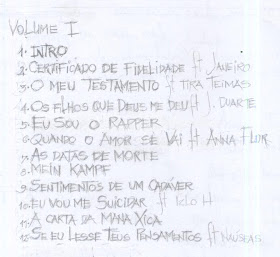 VOLUME I
1. INTRO
2. CERTIFICADO DE FIDELIDADE ft JANEIRO
3. O MEU TESTAMENTO ft TIRA TEIMAS
4. OS FILHOS QUE DEUS ME DEU ft J. DUARTE
5. EU SOU O RAPPER
6. QUANDO O AMOR SE VAI ft ANNA FLOR
7. AS DATAS DE MORTE
8. MEIN KAMPF
9. SENTIMENTOS DE UM CADÁVER
10. EU VOU ME SUICIDAR ft H
11. A CARTA DA MANA XICA
12. SE EU LESSE TEUS PENSAMENTOS ft NAUSEAS